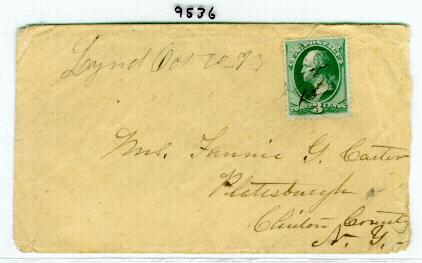 9536
Lynd Oct 20 73
U.S. POSTAGE
THREE CENTS
3
Mrs. Fannie G. Carter
Platesburgh
Clinton County
N. Y.